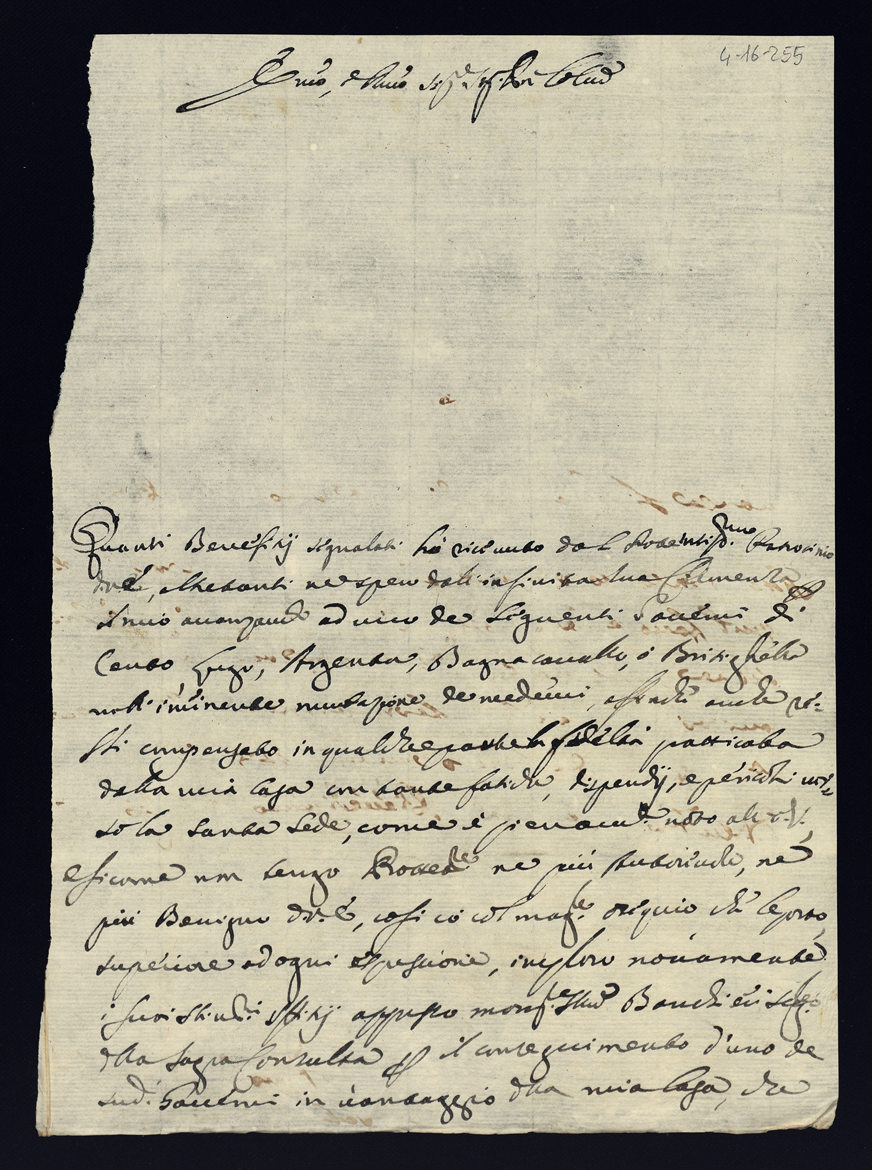 4-16-255
Em̃o, e Rmõ Sigʳᵉ Sigʳ Prõn Colmõ
Quanti Beneficij segnalati hò ricevuto dal Potentissᵐᵒ Patrocinio
di V.E., altretanti ne spero dall'infinita sua Clemenza pʳ
il mio avanzamᵗᵒ ad uno de seguenti Governi di
Cento, Lugo, Argenta, Bagnacavallo, ò Brisighella
nell'iminente mutazione de medemi, affinche anche re-
sti compensato in qualche parte la fedeltà patticata
dalla mia Casa con tante fatiche, dispendij, e pericoli ver-
so la Santa Sede, come è pienamᵗᵉ noto all' V.E.,
e sicome non tengo Protetʳᵉ ne più autorevole, nè
più Benigno di V.E., così io col magʳᵉ ossequio, che le porto,
superiore ad ogni espressione, imploro novamente
i suoi stimᵐⁱ uffizij appresso monsʳᵉ Illmõ Banchieri Segʳⁱᵒ
dlla Sagra Consulta pʳ il conseguimento d'uno de
sudⁱ Governi in vantaggio dlla mia Casa, che